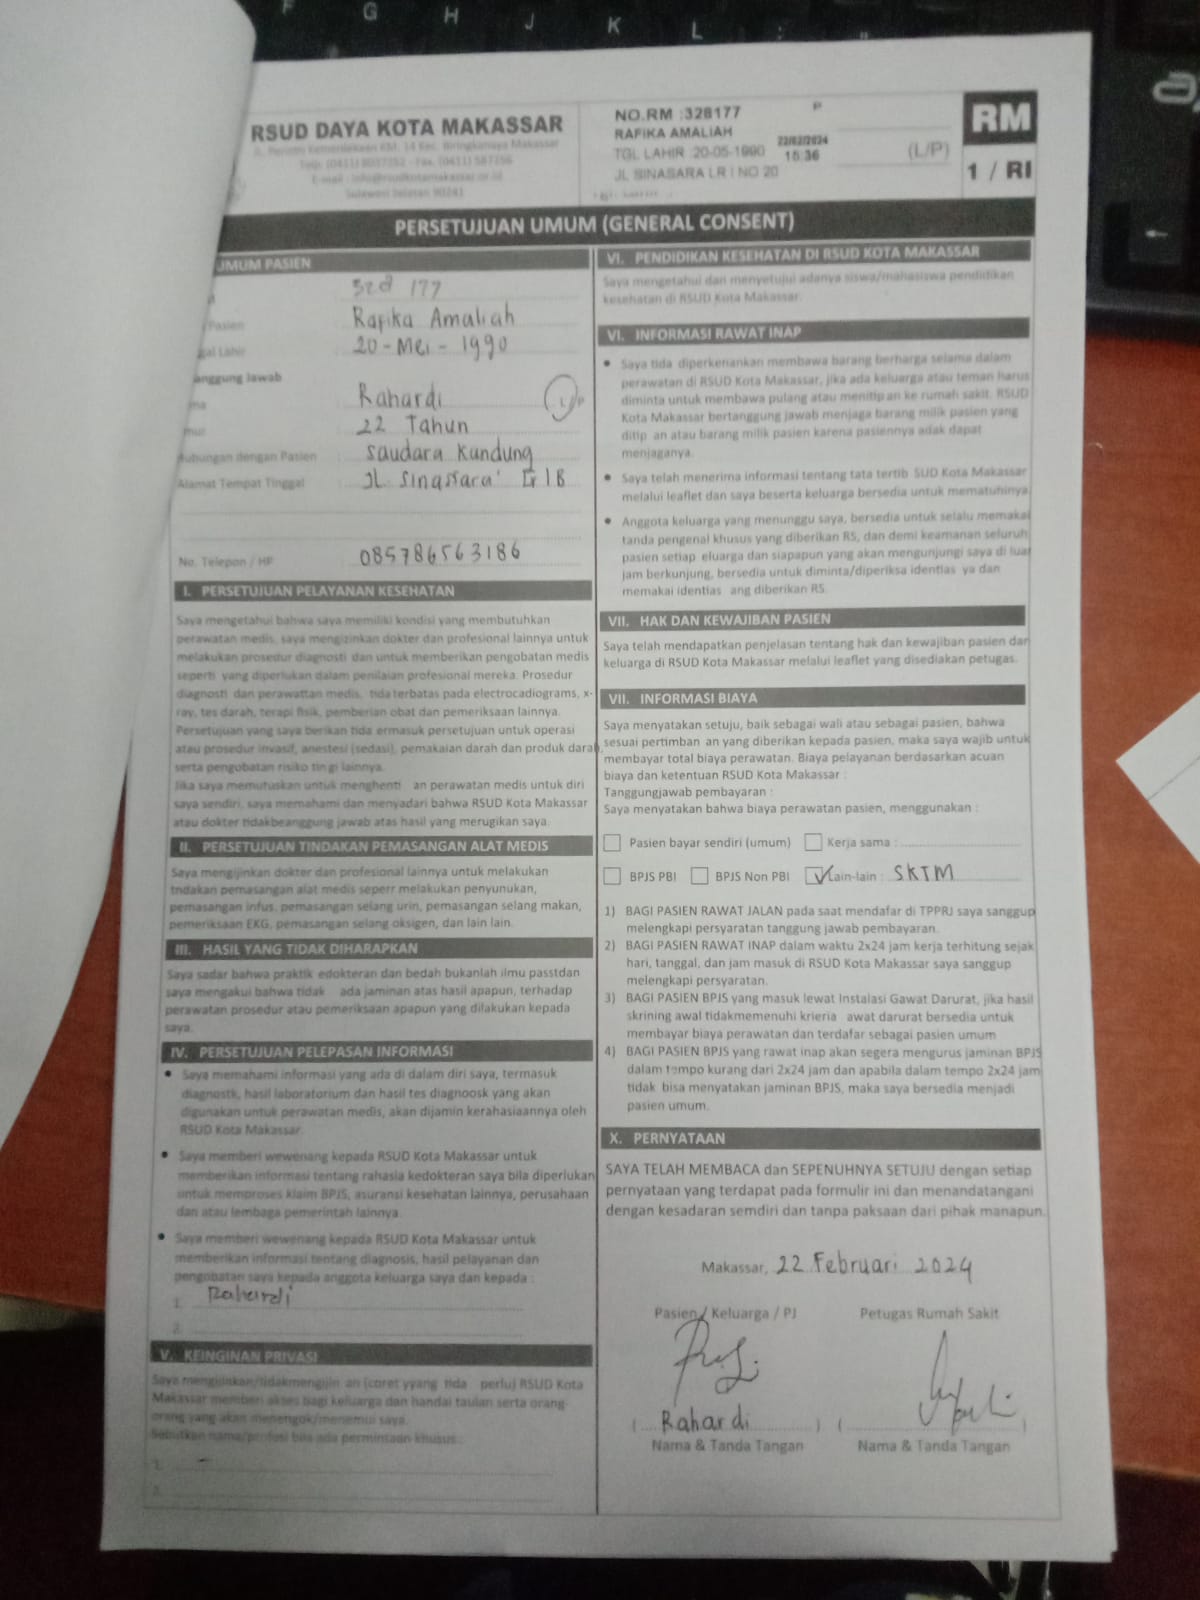 F G H J K L : "
RSUD DAYA KOTA MAKASSAR
Jl. Perintis Kemerdekaan KM. 14 Kec. Biringkanaya Makassar
Sulawesi Selatan 90241
NO.RM :328177 P
RAFIKA AMALIAH
TGL LAHIR :20-05-1990 22/02/2024 15:36
JL SINASARA LR I NO 20
(L/P)
RM
1 / RI
PERSETUJUAN UMUM (GENERAL CONSENT)
UMUM PASIEN
177
Pasien Rafika Amaliah
gal Lahir 20-Mei-1990
anggung Jawab
ma Rahardi L/P
mur 22 Tahun
Hubungan dengan Pasien Saudara Kandung
Alamat Tempat Tinggal JL.
No. Telepon / HP 085786563186
I. PERSETUJUAN PELAYANAN KESEHATAN
Saya mengetahui bahwa saya memiliki kondisi yang membutuhkan
perawatan medis, saya mengizinkan dokter dan profesional lainnya untuk
melakukan prosedur diagnosti dan untuk memberikan pengobatan medis
seperti yang diperlukan dalam penilaian profesional mereka. Prosedur
diagnosti dan perawattan medis, tida terbatas pada electrocadiograms, x-
ray, tes darah, terapi fisik, pemberian obat dan pemeriksaan lainnya.
Persetujuan yang saya berikan tida ermasuk persetujuan untuk operasi
atau prosedur invasif, anestesi (sedasi), pemakaian darah dan produk darah,
serta pengobatan risiko tin gi lainnya.
Jika saya memutuskan untuk menghenti an perawatan medis untuk diri
saya sendiri, saya memahami dan menyadari bahwa RSUD Kota Makassar
atau dokter tidakbeanggung jawab atas hasil yang merugikan saya.
II. PERSETUJUAN TINDAKAN PEMASANGAN ALAT MEDIS
Saya mengijinkan dokter dan profesional lainnya untuk melakukan
tndakan pemasangan alat medis seperr melakukan penyunukan,
pemasangan infus, pemasangan selang urin, pemasangan selang makan,
pemeriksaan EKG, pemasangan selang oksigen, dan lain lain.
III. HASIL YANG TIDAK DIHARAPKAN
Saya sadar bahwa praktik edokteran dan bedah bukanlah ilmu passtdan
saya mengakui bahwa tidak ada jaminan atas hasil apapun, terhadap
perawatan prosedur atau pemeriksaan apapun yang dilakukan kepada
saya.
IV. PERSETUJUAN PELEPASAN INFORMASI
• Saya memahami informasi yang ada di dalam diri saya, termasuk
diagnostk, hasil laboratorium dan hasil tes diagnoosk yang akan
digunakan untuk perawatan medis, akan dijamin kerahasiaannya oleh
RSUD Kota Makassar.
• Saya memberi wewenang kepada RSUD Kota Makassar untuk
memberikan informasi tentang rahasia kedokteran saya bila diperlukan
untuk memproses klaim BPJS, asuransi kesehatan lainnya, perusahaan
dan atau lembaga pemerintah lainnya.
• Saya memberi wewenang kepada RSUD Kota Makassar untuk
memberikan informasi tentang diagnosis, hasil pelayanan dan
pengobatan saya kepada anggota keluarga saya dan kepada :
1. Rahardi
2.
V. KEINGINAN PRIVASI
Saya mengijinkan/tidakmengijin an (coret yyang tida perlu) RSUD Kota
Makassar memberi akses bagi keluarga dan handai taulan serta orang-
orang yang akan menengok/menemui saya.
Sebutkan nama/profesi bila ada permintaan khusus :
1. -
2.
VI. PENDIDIKAN KESEHATAN DI RSUD KOTA MAKASSAR
Saya mengetahui dan menyetujui adanya siswa/mahasiswa pendidikan
kesehatan di RSUD Kota Makassar.
VI. INFORMASI RAWAT INAP
• Saya tida diperkenankan membawa barang berharga selama dalam
perawatan di RSUD Kota Makassar, jika ada keluarga atau teman harus
diminta untuk membawa pulang atau menitip an ke rumah sakit. RSUD
Kota Makassar bertanggung jawab menjaga barang milik pasien yang
ditip an atau barang milik pasien karena pasiennya adak dapat
menjaganya.
• Saya telah menerima informasi tentang tata tertib SUD Kota Makassar
melalui leaflet dan saya beserta keluarga bersedia untuk mematuhinya
• Anggota keluarga yang menunggu saya, bersedia untuk selalu memakai
tanda pengenal khusus yang diberikan RS, dan demi keamanan seluruh
pasien setiap eluarga dan siapapun yang akan mengunjungi saya di luar
jam berkunjung, bersedia untuk diminta/diperiksa identias ya dan
memakai identias ang diberikan RS.
VII. HAK DAN KEWAJIBAN PASIEN
Saya telah mendapatkan penjelasan tentang hak dan kewajiban pasien dan
keluarga di RSUD Kota Makassar melalui leaflet yang disediakan petugas.
VII. INFORMASI BIAYA
Saya menyatakan setuju, baik sebagai wali atau sebagai pasien, bahwa
sesuai pertimban an yang diberikan kepada pasien, maka saya wajib untuk
membayar total biaya perawatan. Biaya pelayanan berdasarkan acuan
biaya dan ketentuan RSUD Kota Makassar :
Tanggungjawab pembayaran :
Saya menyatakan bahwa biaya perawatan pasien, menggunakan :
Pasien bayar sendiri (umum) Kerja sama :
BPJS PBI BPJS Non PBI ✓ Lain-lain : SKTM
1) BAGI PASIEN RAWAT JALAN pada saat mendafar di TPPRJ saya sanggup
melengkapi persyaratan tanggung jawab pembayaran.
2) BAGI PASIEN RAWAT INAP dalam waktu 2x24 jam kerja terhitung sejak
hari, tanggal, dan jam masuk di RSUD Kota Makassar saya sanggup
melengkapi persyaratan.
3) BAGI PASIEN BPJS yang masuk lewat Instalasi Gawat Darurat, jika hasil
skrining awal tidakmemenuhi krieria awat darurat bersedia untuk
membayar biaya perawatan dan terdafar sebagai pasien umum
4) BAGI PASIEN BPJS yang rawat inap akan segera mengurus jaminan BPJS
dalam tempo kurang dari 2x24 jam dan apabila dalam tempo 2x24 jam
tidak bisa menyatakan jaminan BPJS, maka saya bersedia menjadi
pasien umum.
X. PERNYATAAN
SAYA TELAH MEMBACA dan SEPENUHNYA SETUJU dengan setiap
pernyataan yang terdapat pada formulir ini dan menandatangani
dengan kesadaran semdiri dan tanpa paksaan dari pihak manapun.
Makassar, 22 Februari 2024
Pasien / Keluarga / PJ Petugas Rumah Sakit
( Rahardi ) ( )
Nama & Tanda Tangan Nama & Tanda Tangan